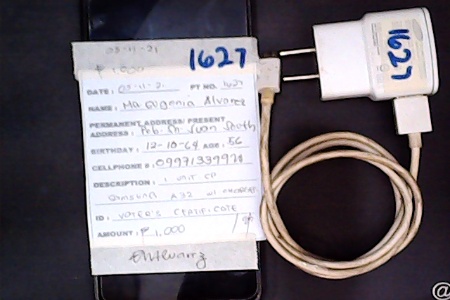 05-11-21
1627
₱1,000
DATE: 05-11-21 PT NO. 1627
NAME: Ma Eugenia Alvarez
PERMANENT ADDRESS/PRESENT
ADDRESS: San Juan South,
BIRTHDAY: 12-10-64 AGE: 56
CELLPHONE #:
DESCRIPTION: 1 unit CP
Samsung A32 w/ charger
ID: Voter's Certificate
AMOUNT: ₱1,000
1627
@